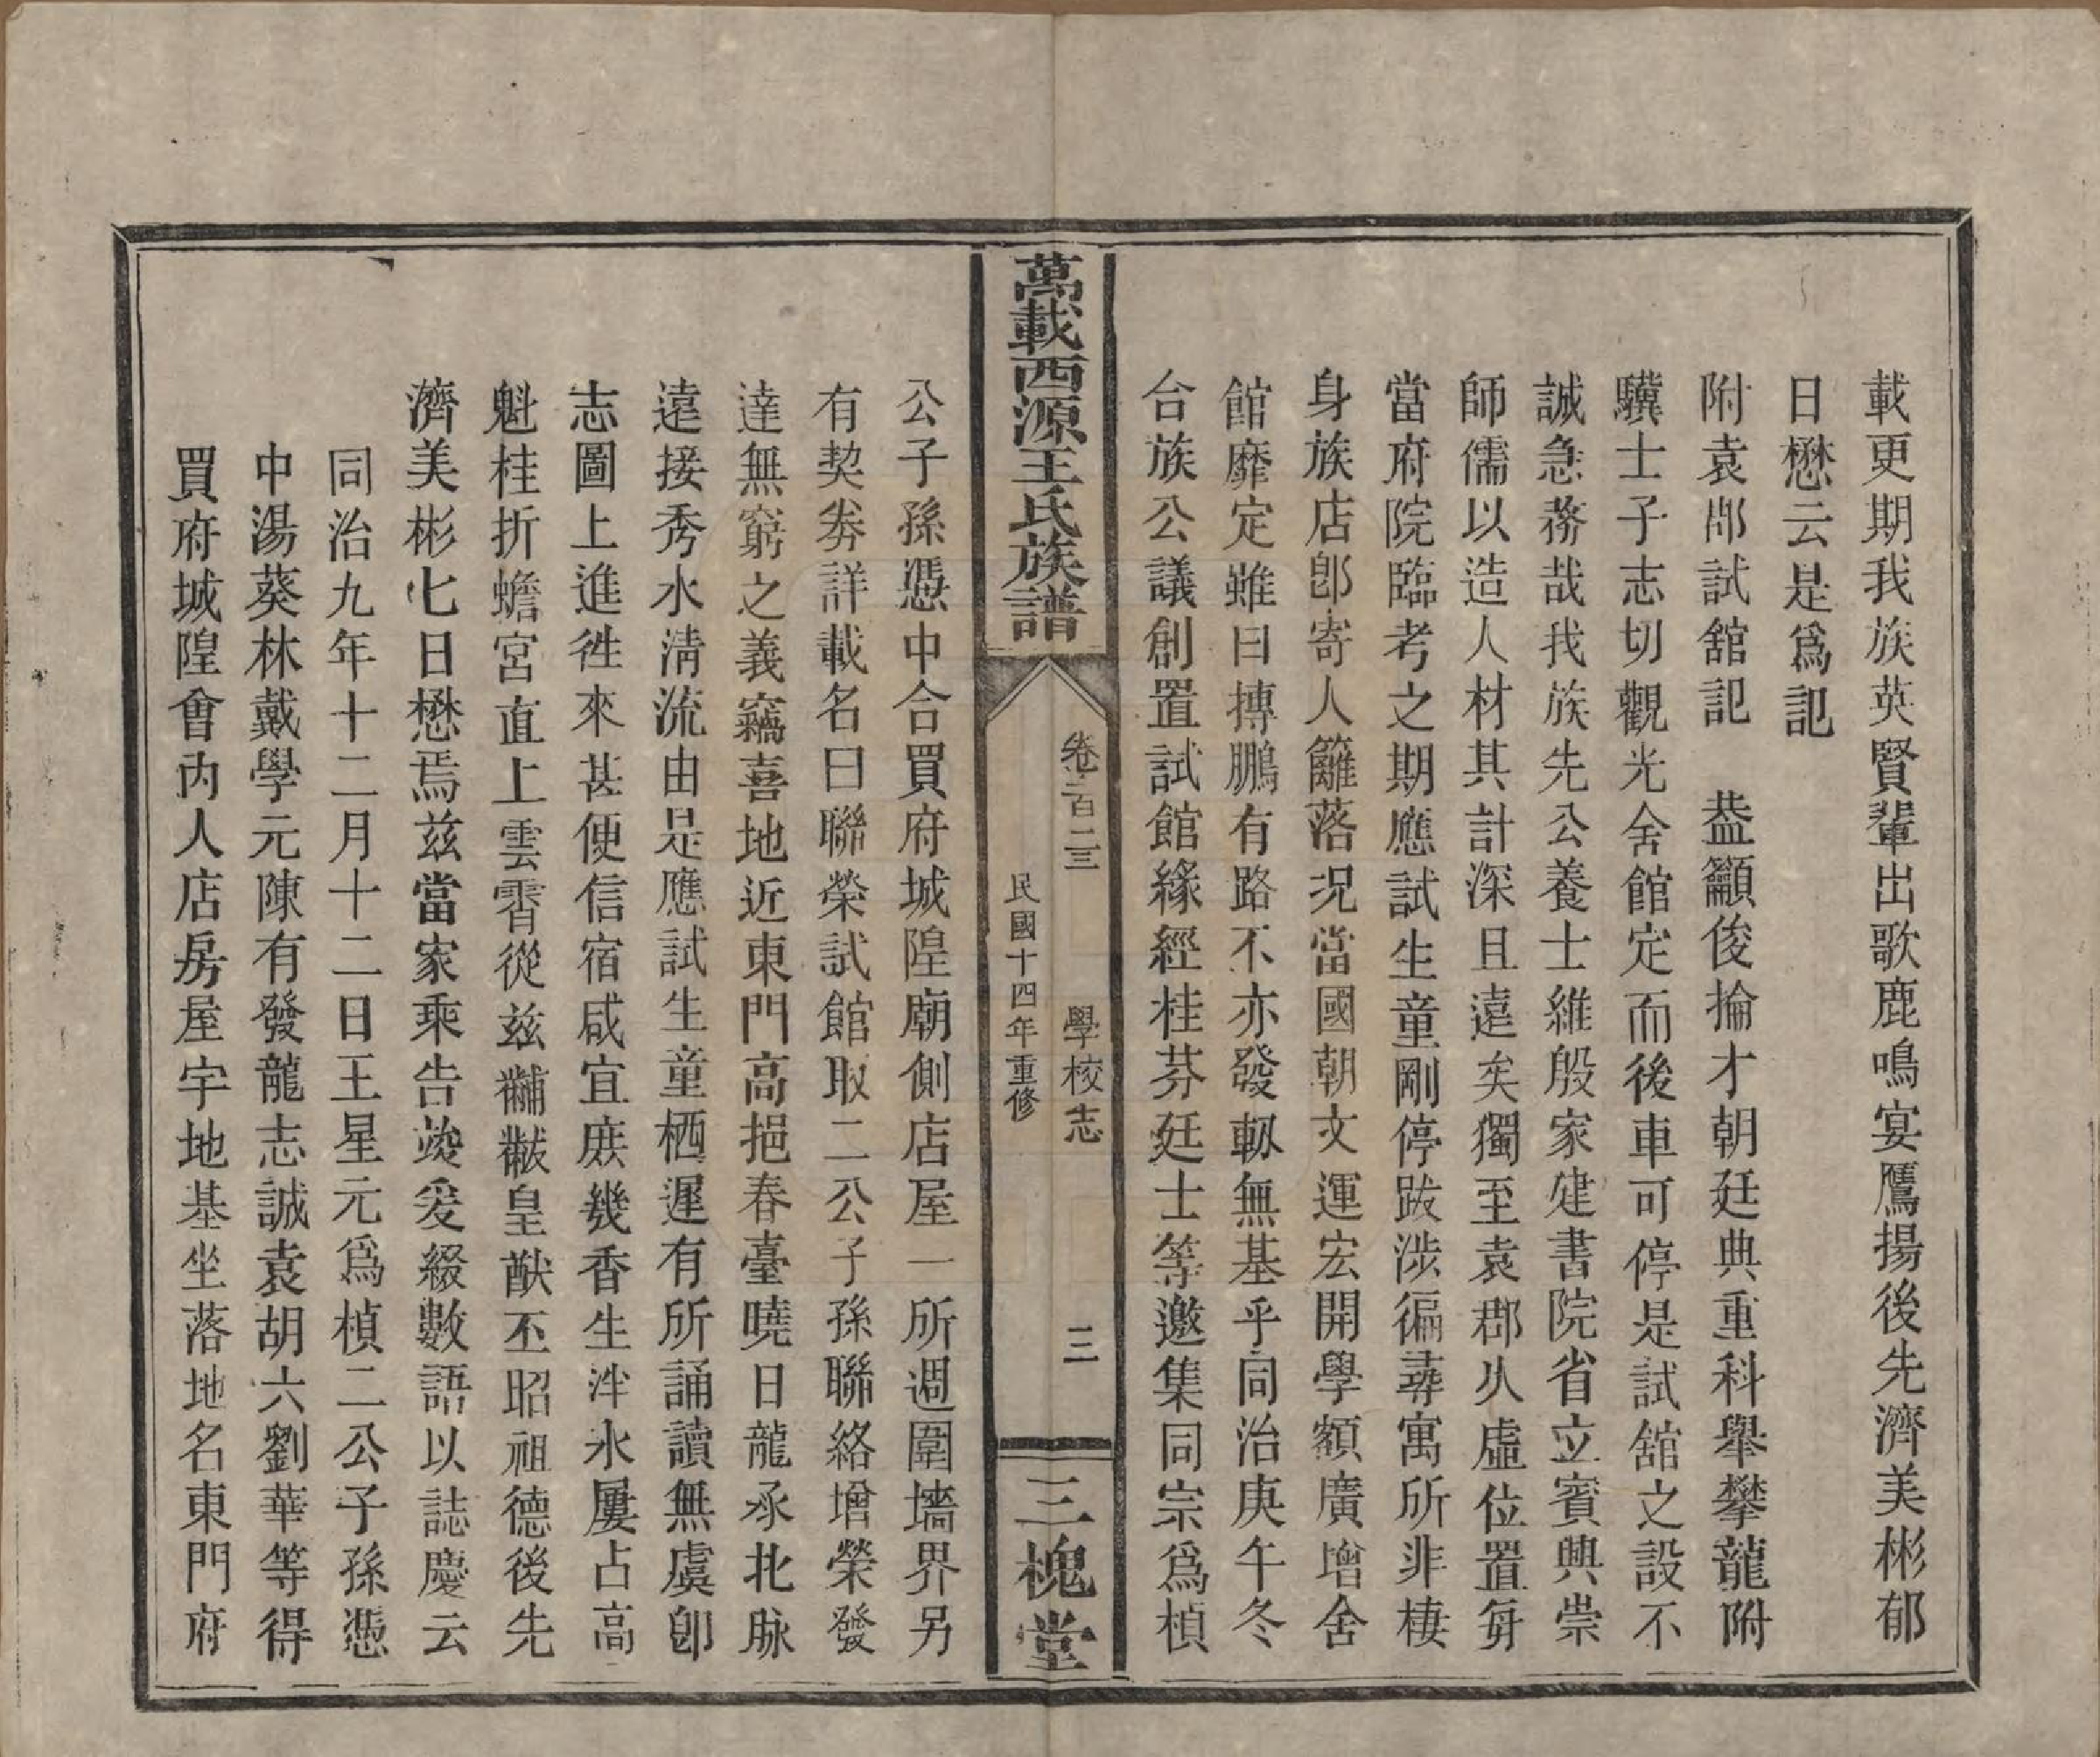 載更期我族英賢輩出歌鹿鳴宴鷹揚後先濟美彬郁
日懋云是爲記
附袁郡試舘記　葢籲俊掄才朝廷典重科舉攀龍附
驥士子志切觀光舍館定而後車可停是試舘之設不
誠急務哉我族先公養士維殷家建書院省立賓興崇
師儒以造人材其計深且遠矣獨至袁郡久虛位置每
當府院臨考之期應試生童剛停跋涉徧尋寓所非棲
身族店卽寄人籬落况當國朝文運宏開學額廣增舍
館靡定雖曰摶鵬有路不亦發軔無基乎同治庚午冬
台族公議創置試館緣經桂芬廷士等邀集同宗爲楨
萬載西源王氏族譜
卷首二三　學校志　三
民國十四年重修
三槐堂
公子孫憑中合買府城隍廟側店屋一所週圍墻界另
有契券詳載名曰聯榮試館取二公子孫聯絡增榮發
達無窮之義竊喜地近東門高挹春臺曉日龍承北脉
遠接秀水清流由是應試生童栖遲有所誦讀無虞卽
志圖上進徃來甚便信宿咸宜庶幾香生泮水屢占高
魁桂折蟾宮直上雲霄從兹黼黻皇猷丕昭祖德後先
濟美彬七日懋焉兹當家乘告竣爰綴數語以誌慶云
同治九年十二月十二日王星元爲楨二公子孫憑
中湯葵林戴學元陳有發龍志誠袁胡六劉華等得
買府城隍會內人店房屋宇地基坐落地名東門府